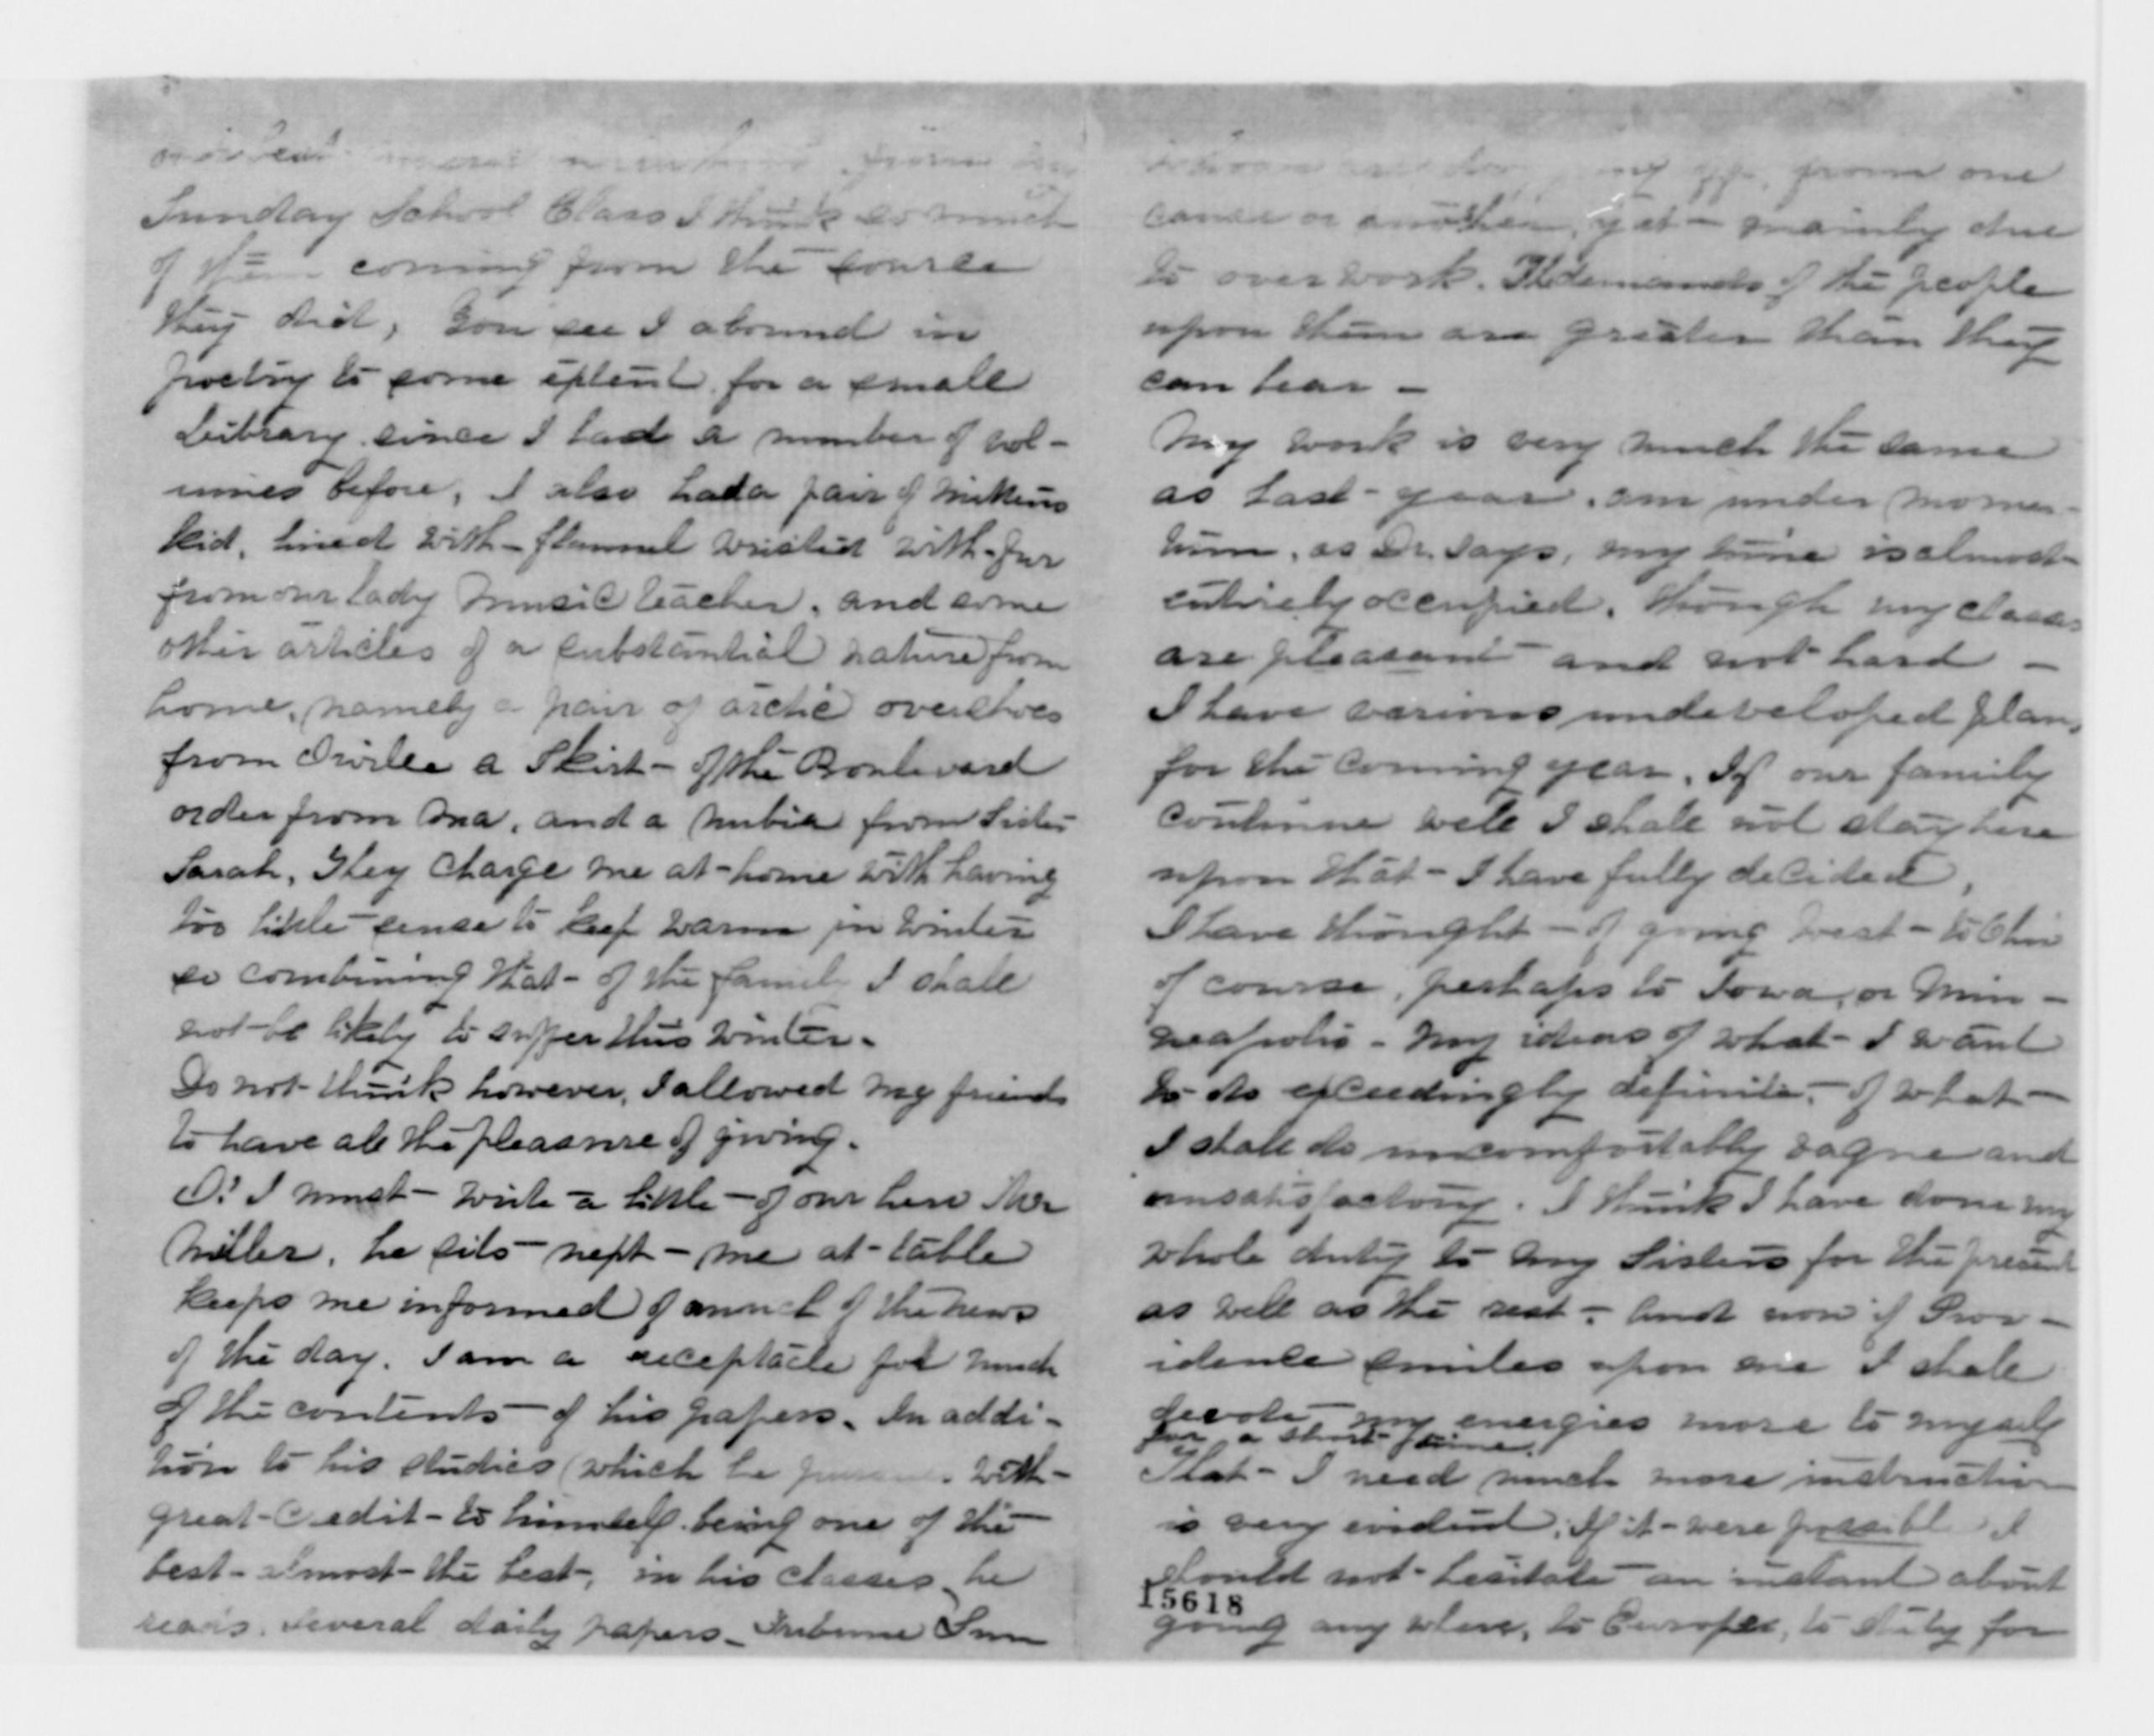 Sunday School Class I think so much
of them coming from the source
they did, You see I abound in
poetry to some extent for a small
Library since I had a number of vol-
umes before, I also had a pair of mittens
kid, lined with flannel wristed with fur
from our lady music teacher, and some
other articles of a substantial nature from
home, namely a pair of arctic overshoes
from a Skirt of the Boulevard
order from Ma, and a nubia from Sister
Sarah, They charge me at home with having
too little sense to keep warm in winter
so combining that of the family I shall
not be likely to suffer this winter.
Do not think however, I allowed my friends
to have all the pleasure of giving.
O! I must write a little of our hero Mr
Miller, he sits next me at table
keeps me informed of much of the news
of the day. I am a receptacle for much
of the contents of his papers. In addi-
tion to his studies (which he with
great credit to himself being one of the
best almost the best, in his classes, he
reads several daily papers - Tribune Sun
from one
cause or another, yet mainly due
to overwork. The demands of the people
upon them are greater than they
can bear -
My work is very much the same
as last year, am under momen-
tum, as Dr. says, my time is almost
entirely occupied, though my classes
are pleasant and not hard -
I have various undeveloped plans
for the coming year, If our family
continue well I shall not stay here
upon that I have fully decided,
I have thought of going west - to Ohio
of course, perhaps to Iowa, or Min-
neapolis - My ideas of what I want
to do exceedingly definite - of what
I shall do uncomfortably vague and
unsatisfactory. I think I have done my
whole duty to my Sisters for the present
as well as the rest - And now if Prov-
idence smiles upon me I shall
devote my energies more to myself
for a short time.
That I need much more instruction
is very evident, If it were possible I
should not hesitate an instant about
15618
going any where, to Europe, to study for